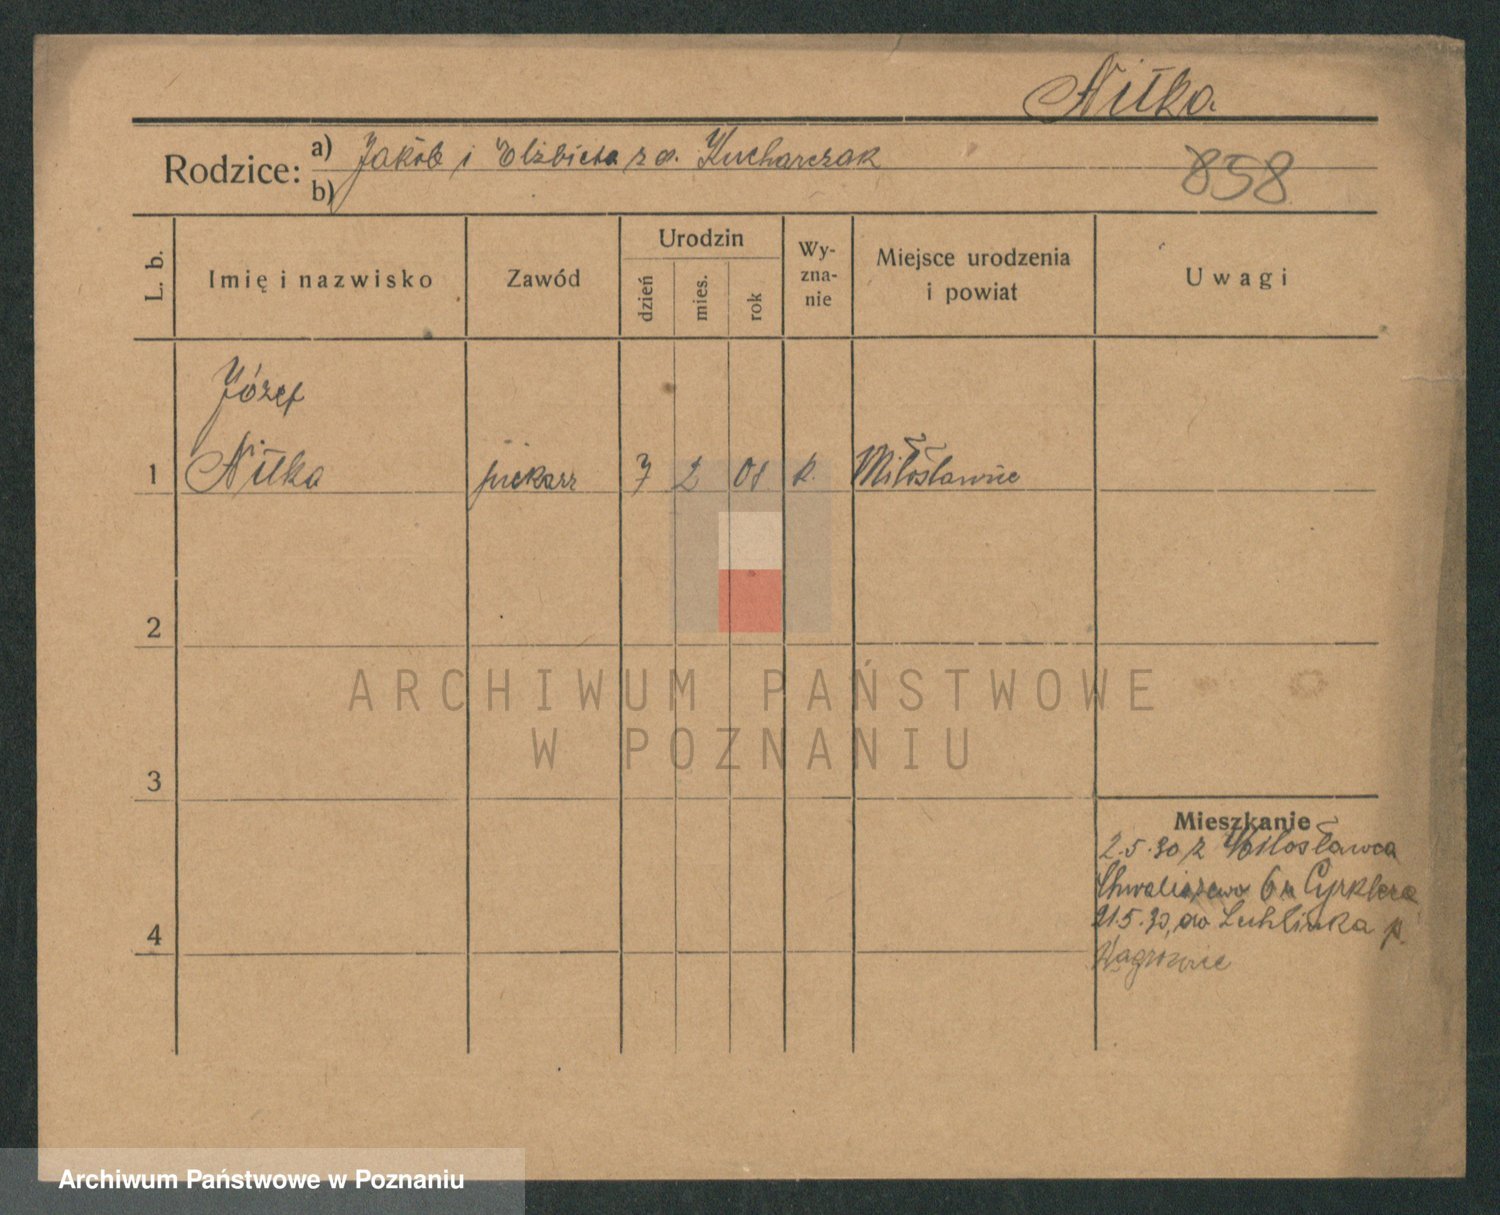 Nitka
Rodzice: a) Jakób i Elżbieta z d. Kucharczak
b)
858
L. b.
Imię i nazwisko
Zawód
Urodzin
dzień
mies.
rok
Wy-
zna-
nie
Miejsce urodzenia
i powiat
Uwagi
Józef
1 Nitka piekarz 7 2 08 k. Miłosławice
2
3
4
ARCHIWUM PAŃSTWOWE
W POZNANIU
Mieszkanie
2.5.30 z Miłosławca
Chwaliszewo 6 u Cyrklera
21.5.30, do Lechlinka p.
Archiwum Państwowe w Poznaniu